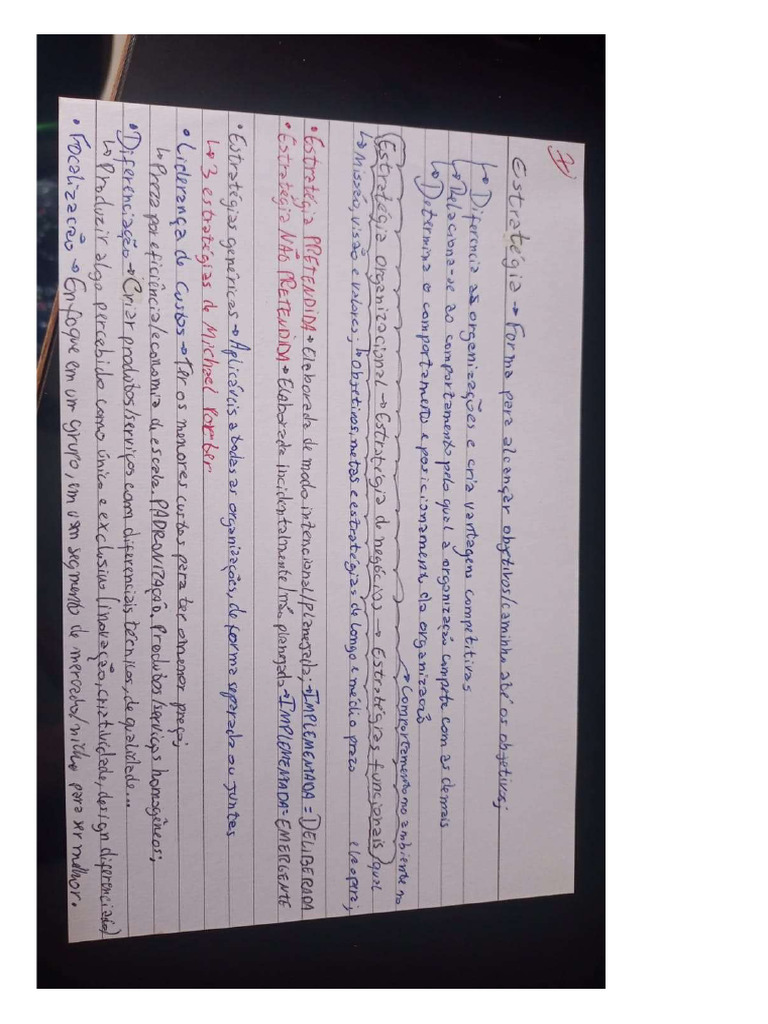 Estratégia → Forma para alcançar objetivos/caminho até os objetivos;
↳ Diferencia as organizações e cria vantagens competitivas
↳ Relaciona-se ao comportamento pelo qual a organização compete com as demais
↳ Determina o comportamento e posicionament. da organização
→ Comportamento no ambiente no
Estratégia organizacional → Estratégia de negócios → Estratégias funcionais qual
↳ Missão, visão e valores; ↳ objetivos, metas e estratégias de longo e médio prazo ela opera;
• Estratégia PRETENDIDA → Elaborada de modo intencional/planejada; → IMPLEMENTADA = DELIBERADA
• Estratégia NÃO PRETENDIDA → Elaborada incidentalmente/não planejada → IMPLEMENTADA = EMERGENTE
• Estratégias genéricas → Aplicáveis a todas as organizações, de forma separada ou juntas
↳ 3 estratégias de Michael Porter
• Liderança de custos → Ter os menores custos para ter o menor preço;
↳ Preza por eficiência/economia de escala. PADRONIZAÇÃO. Produtos/serviços homogêneos;
• Diferenciação → Criar produtos/serviços com diferenciais técnicos, de qualidade...
↳ Produzir algo percebido como único e exclusivo (inovação, criatividade, design diferenciado)
• Focalização → Enfoque em um grupo, em um segmento de mercado/nicho para ser melhor.